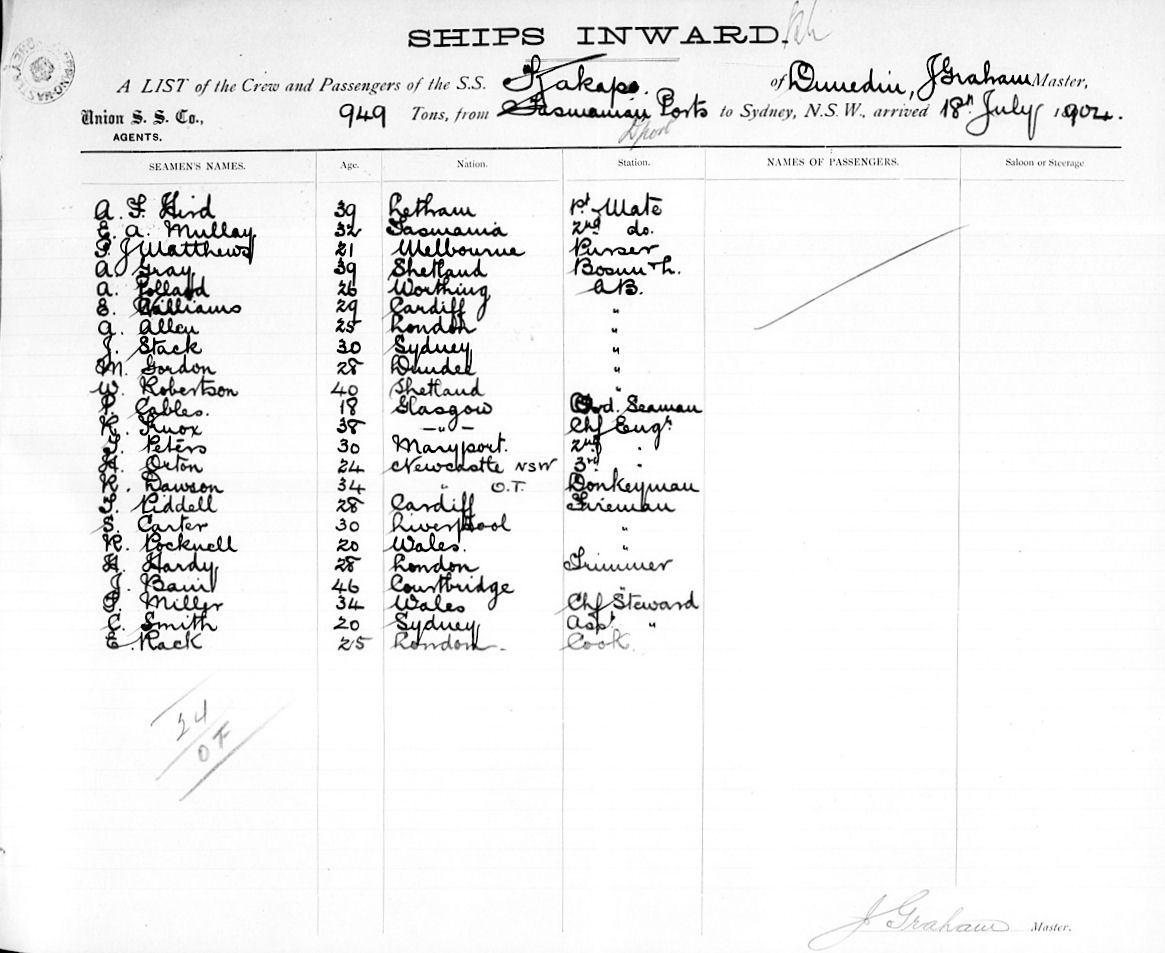 SHIPS INWARD.
A LIST of the Crew and Passengers of the S.S. Kakapo. of Dunedin, J Graham Master,
Union S. S. Co., 949 Tons, from Tasmanian Ports to Sydney, N.S.W., arrived 18th July 1904.
AGENTS.
SEAMEN'S NAMES. Age. Nation. Station. NAMES OF PASSENGERS. Saloon or Steerage
A. F. Hird 39 Letham 1st Mate
E. A. Mullay 32 Tasmania 2nd do.
P. J Matthews 21 Melbourne Purser
A. Gray 39 Shetland Bosun & L.
A. Pollard 26 Worthing A.B.
E. Williams 29 Cardiff "
A. Allen 25 London "
J. Stack 30 Sydney "
M. Gordon 28 Dundee "
W. Robertson 40 Shetland "
P. Cables. 18 Glasgow Ord. Seaman
R. Knox 38 - " - Chf Engr
T. Peters 30 Maryport. 2nd "
H. Orton 24 Newcastle NSW 3rd "
R. Dawson 34 " O.T. Donkeyman
T. Riddell 28 Cardiff Fireman
S. Carter 30 Liverpool "
R. Cocknell 20 Wales. "
H. Hardy 28 London Trimmer
J. 46 Courtbridge "
P. Miller 34 Wales Chf Steward
C. Smith 20 Sydney Asst "
E. Rack 25 London. Cook.
24
OF
J Graham Master.